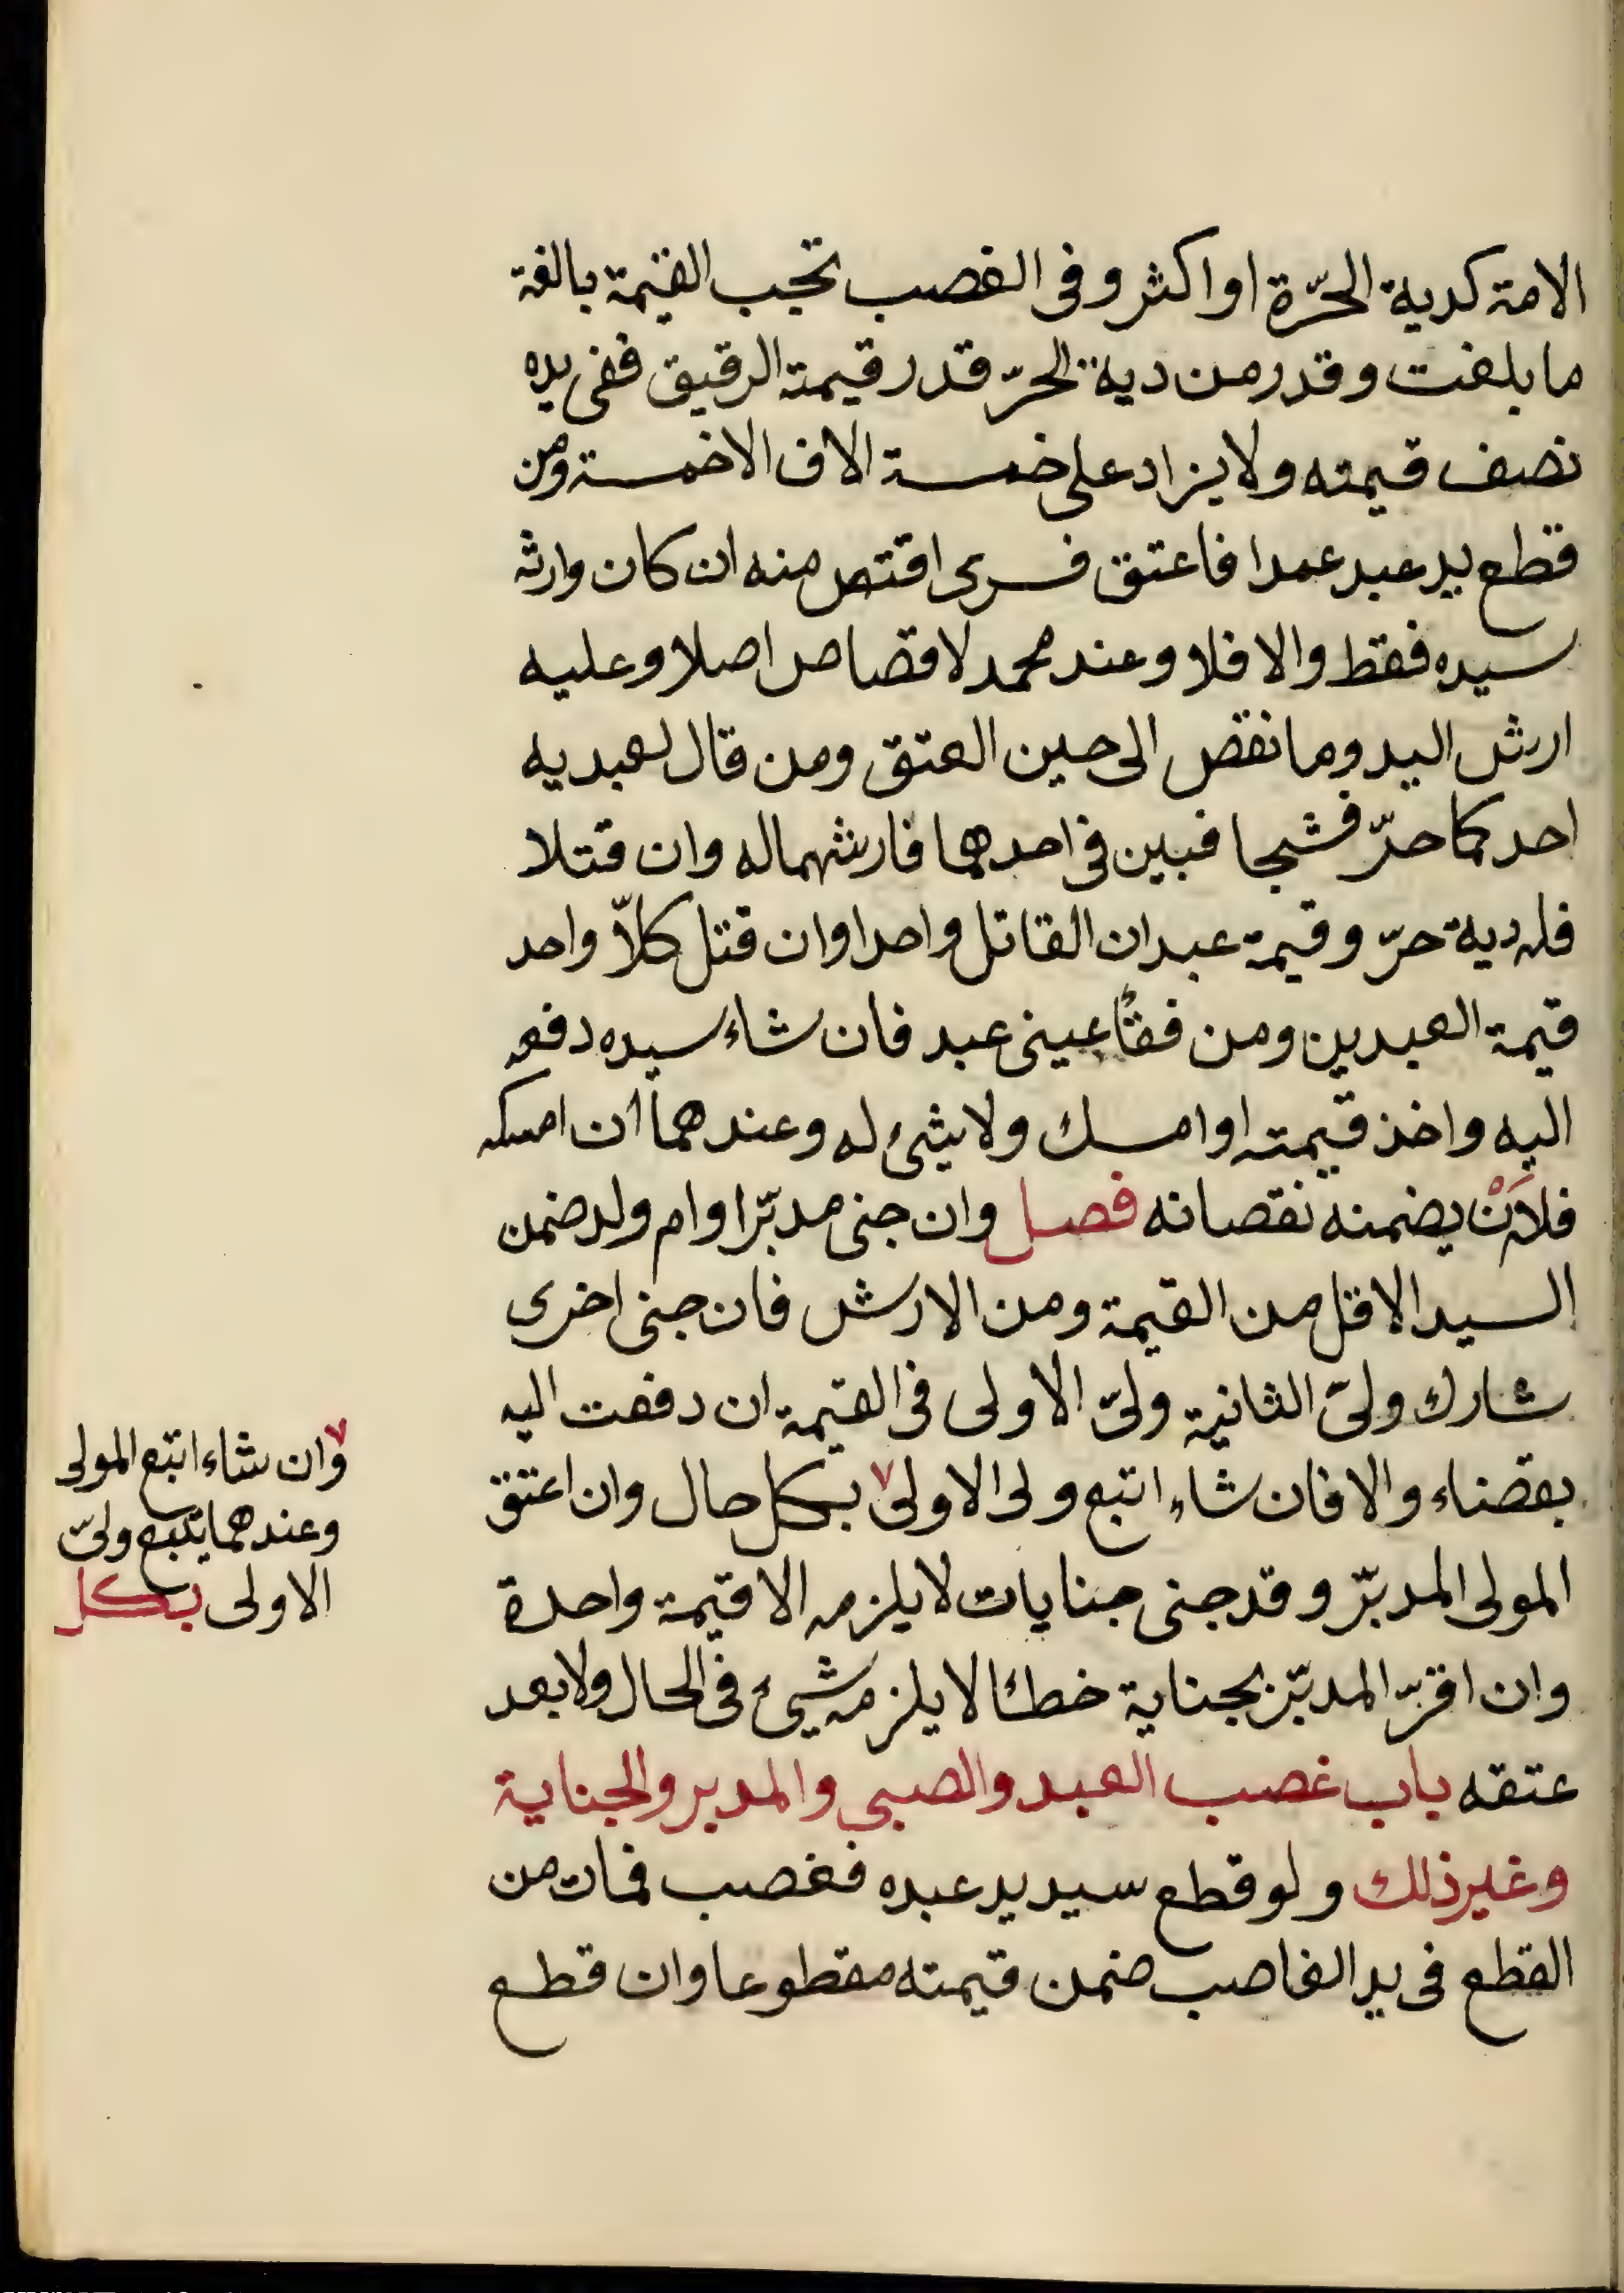 الامة كدية الحرّة او اكثر وفى الغصب تجب القيمة بالغة
ما بلغت وقدر من دية الحرّ قدر قيمة الرقيق ففى يده
نصف قيمته ولا يزاد على خمسة الاف الا خمسة ومن
قطع يد عبد عمدا فاعتق فسرى اقتص منه ان كان وارثه
سيده فقط والا فلا وعند محمد لا قصاص اصلا وعليه
ارش اليد وما نقص الى حين العتق ومن قال لعبديه
احدكما حرّ فشجا فبين فى احدهما فارشهما له وان قتلا
فله دية حرّ وقيمة عبد ان القاتل واحدا وان قتل كلاّ واحد
قيمة العبدين ومن فقأ عينى عبد فان شاء سيده دفعه
اليه واخذ قيمته او امسك ولا شئ له وعندهما ان امسكه
فله اَنْ يضمنه نقصانه فصل وان جنى مدبّر او ام ولد ضمن
السيد الاقل من القيمة ومن الارش فان جنى اخرى
شارك ولىّ الثانية ولىّ الاولى فى القيمة ان دفعت اليه
بقضاء والا فان شاء اتبع ولى الاولى ٧ بكل حال وان اعتق
المولى المدبّر وقد جنى جنايات لا يلزمه الا قيمة واحدة
وان اقرّ المدبّر بجناية خطئا لا يلزمه شيئ فى الحال ولا بعد
عتقه باب غصب العبد والصبى والمدبر والجناية
وغير ذلك ولو قطع سيد يد عبده فغصب فمات من
القطع فى يد الغاصب ضمن قيمته مقطوعا وان قطع
٧ وان شاء اتبع المولى
وعندهما يتبع ولىّ
الاولى بكل